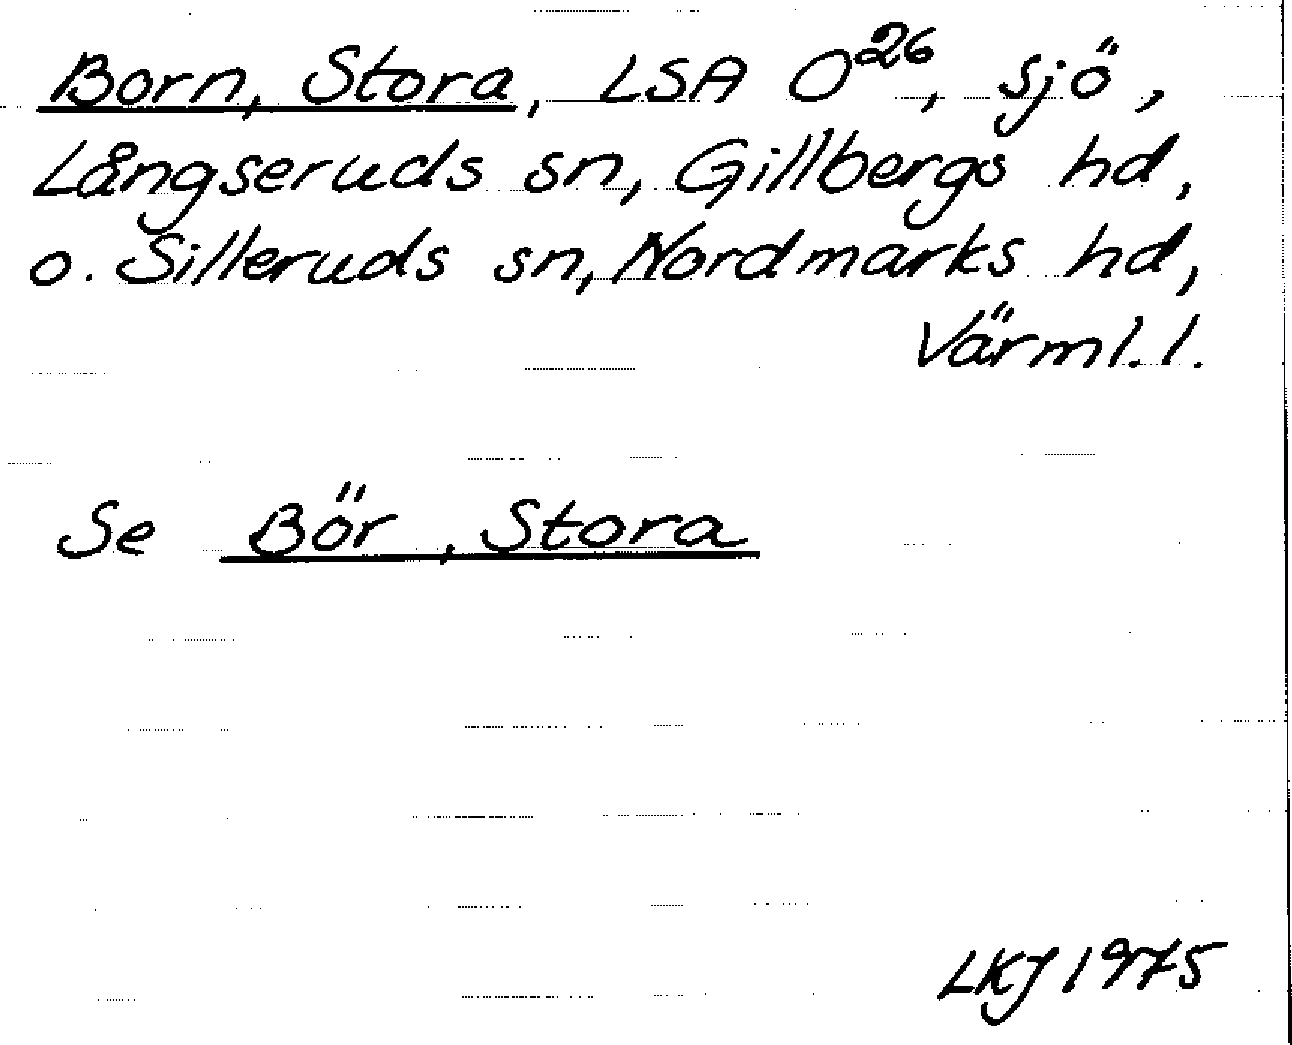 Born, Stora, LSA O26, sjö,
Långseruds sn, Gillbergs hd,
o. Silleruds sn, Nordmarks hd,
Värml. l.
Se Bör, Stora
LKJ 1975